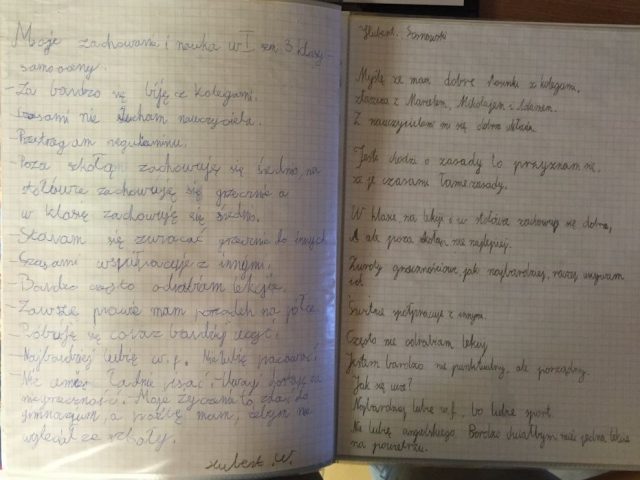 Moje zachowanie i nauka w I sem. 3 klasy -
samooceny.
- Za bardzo się biję z kolegami.
- Czasami nie słucham nauczyciela.
- Przestrzegam regulaminu.
- Poza szkołą zachowuję się średnio, na
stołówce zachowuję się grzecznie a
w klasie zachowuję się średnio.
- Staram się zwracać do innych
- Czasami współpracuję z innymi.
- Bardzo często odrabiam lekcje.
- Zawsze prawie mam porządek na półce.
- się coraz bardziej
- Najbardziej lubię w.f. Nie lubię pracować.
- Nie umiem ładnie pisać. Uwagi dostaję za
Moje życzenia to zdać do
gimnazjum, a mam, żebym nie
wyleciał ze szkoły.
Hubert .W.
Hubert Sosnowski
Myślę że mam dobre stosunki z kolegami,
z Marcelem, Mikołajem i Adamem.
Z nauczycielami mi się dobrze układa.
Jeśli chodzi o zasady to przyznam się,
że je czasami łamę zasady.
W klasie na lekcji i w stołówce zachowuję się dobrze,
ale poza szkołą nie najlepiej.
Zwroty grzecznościowe jak najbardziej, raczej używam
ich.
Świetnie spółpracuje z innym.
Często nie odrabiam lekcji
Jestem bardzo nie punktualny, ale porządny.
Jak się uczę?
Najbardziej lubię w.f., bo lubię sport.
Nie lubię angielskiego. Bardzo chciałbym mieć jedną lekcję
na powietrzu.